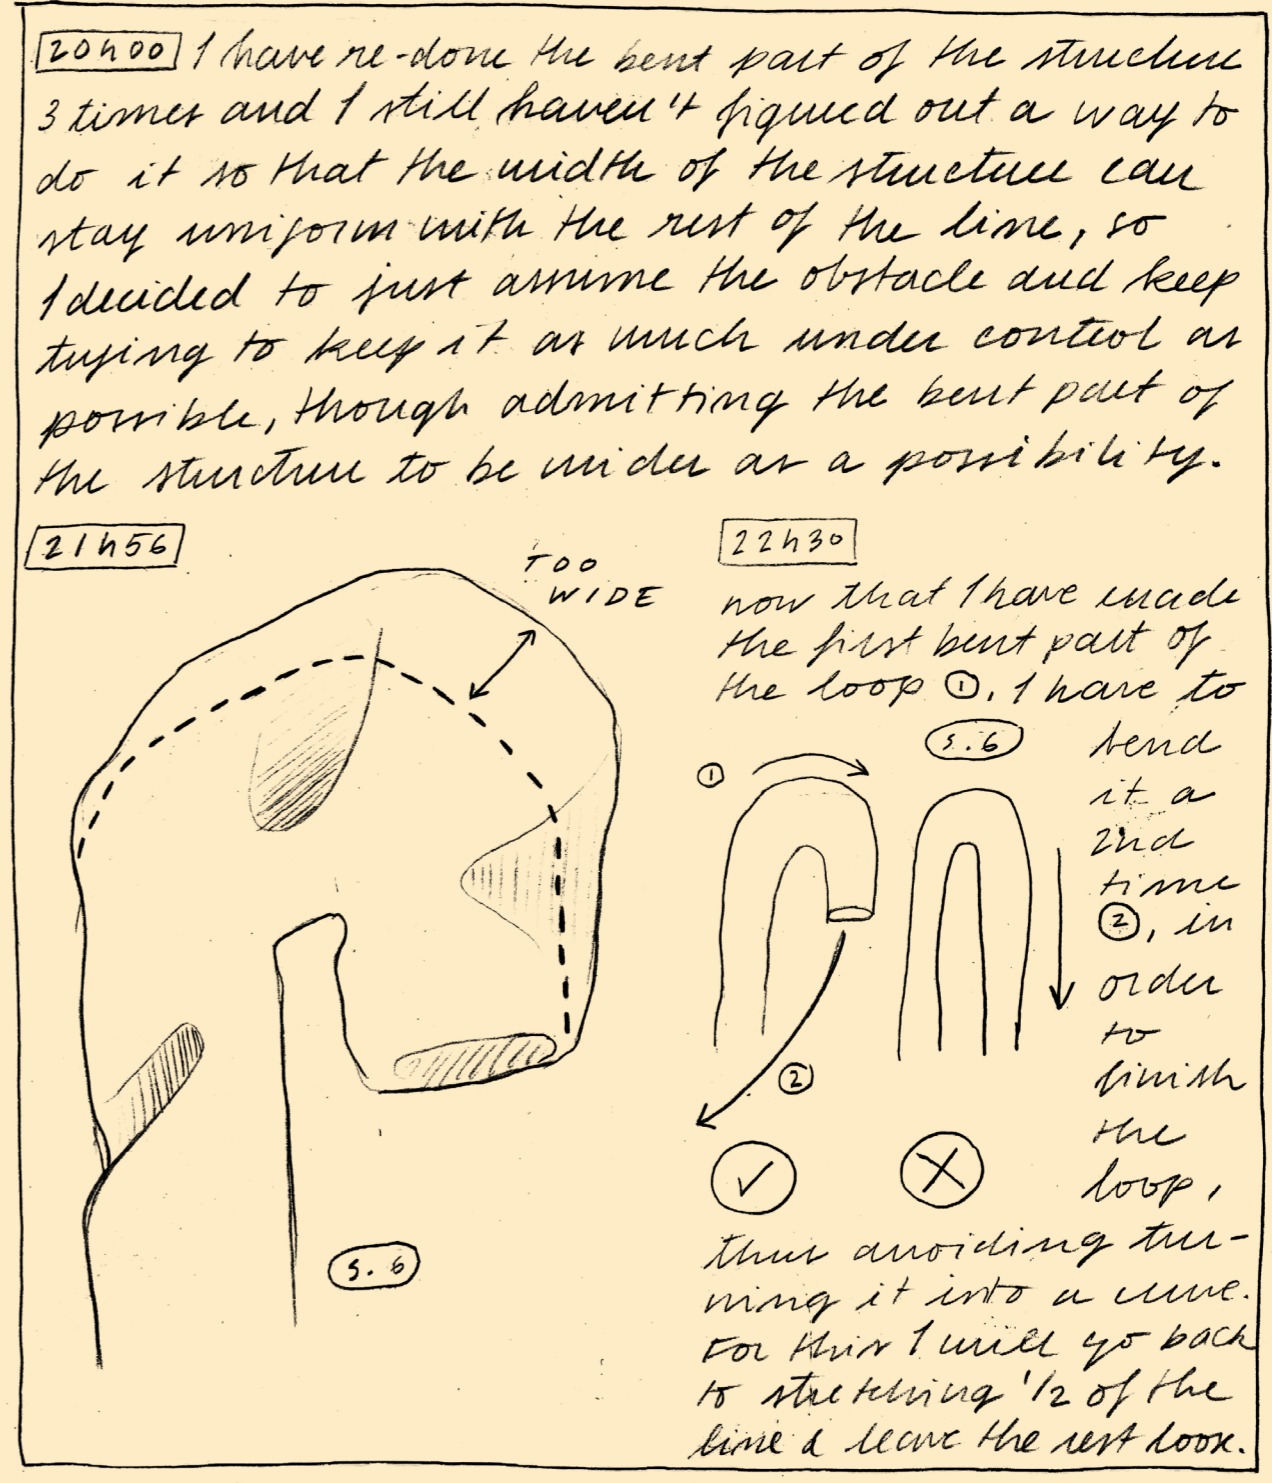 20h00 I have re-done the bent part of the structure
3 times and I still haven't figured out a way to
do it so that the width of the structure can
stay uniform with the rest of the line, so
I decided to just assume the obstacle and keep
trying to keep it as much under control as
possible, though admitting the bent part of
the structure to be wider as a possibility.
21h56
TOO
WIDE
s.6
22h30
now that I have made
the first bent part of
the loop ①, I have to
s.6
bend
it a
2nd
time
②, in
order
to
finish
the
loop,
①
②
thus avoiding tur-
ning it into a curve.
For this I will go back
to stretching 1/2 of the
line & leave the rest loose.